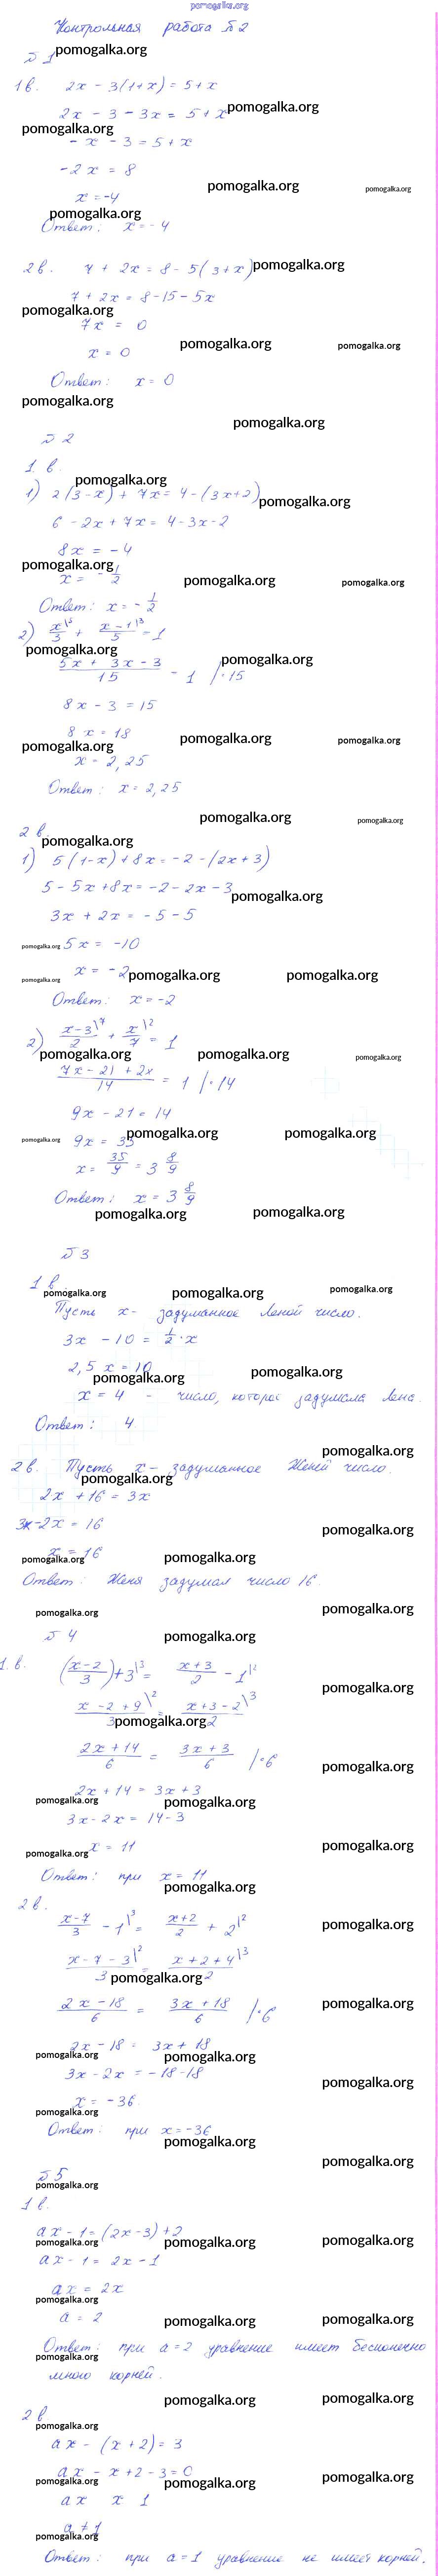 pomogalka.org
Контрольная работа №2
№ 1
1 в. 2x - 3(1+x) = 5+x
2x - 3 - 3x = 5+x
- x - 3 = 5+x
-2x = 8
x = -4
Ответ: x = -4
2 в. 7 + 2x = 8 - 5(3+x)
7 + 2x = 8 - 15 - 5x
7x = 0
x = 0
Ответ: x = 0
№ 2
1. в.
1) 2(3-x) + 7x = 4 - (3x+2)
6 - 2x + 7x = 4 - 3x - 2
8x = -4
x = - 1/2
Ответ: x = - 1/2
2) x/3 \5 + (x-1)/5 \3 = 1
(5x + 3x - 3)/15 = 1 | · 15
8x - 3 = 15
8x = 18
x = 2,25
Ответ: x = 2,25
2 в.
1) 5(1-x) + 8x = -2 - (2x+3)
5 - 5x + 8x = -2 - 2x - 3
3x + 2x = -5 - 5
5x = -10
x = -2
Ответ: x = -2
2) (x-3)/2 \7 + x/7 \2 = 1
(7x - 21 + 2x)/14 = 1 | · 14
9x - 21 = 14
9x = 35
x = 35/9 = 3 8/9
Ответ: x = 3 8/9
№ 3
1 в.
Пусть x - задуманное Леной число.
3x - 10 = 1/2 · x
2,5x = 10
x = 4 - число, которое задумала Лена.
Ответ: 4.
2 в. Пусть x - задуманное Женей число.
2x + 16 = 3x
3x - 2x = 16
x = 16
Ответ: Женя задумал число 16.
№ 4
1. в. ((x-2)/3) + 3 \3 = (x+3)/2 - 1 \2
(x - 2 + 9)/3 \2 = (x+3-2)/2 \3
(2x+14)/6 = (3x+3)/6 | · 6
2x + 14 = 3x + 3
3x - 2x = 14 - 3
x = 11
Ответ: при x = 11
2 в.
(x-7)/3 - 1 \3 = (x+2)/2 + 2 \2
(x - 7 - 3)/3 \2 = (x + 2 + 4)/2 \3
(2x - 18)/6 = (3x + 18)/6 | · 6
2x - 18 = 3x + 18
3x - 2x = -18 - 18
x = -36.
Ответ: при x = -36
№ 5
1 в.
ax - 1 = (2x-3) + 2
ax - 1 = 2x - 1
ax = 2x
a = 2
Ответ: при a = 2 уравнение имеет бесконечно
много корней.
2 в
ax - (x+2) = 3
ax - x + 2 - 3 = 0
ax x 1
a ≠ 1
Ответ: при a = 1 уравнение не имеет корней.